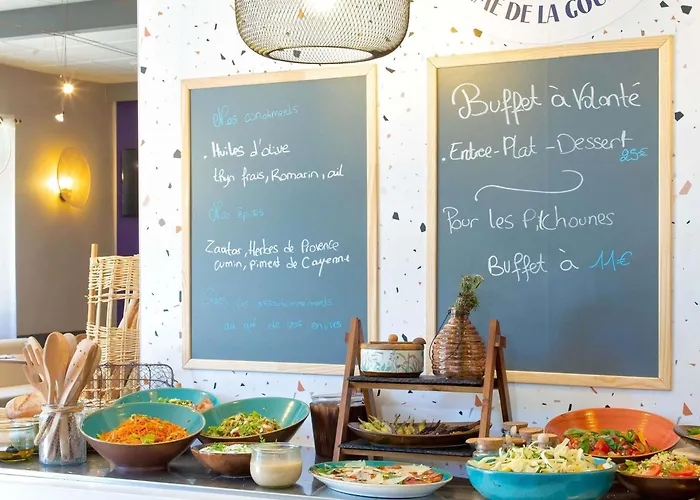 ME DE LA GOU
Nos condiments
. Huiles d'olive
thyn frais, Romarin, ail
Nos épices
Zaatar, Herbes de Provence
cumin, piment de Cayenne
Buffet à Volonté
. Entrée - Plat - Dessert
25€
Pour les Pitchounes
Buffet à 11€